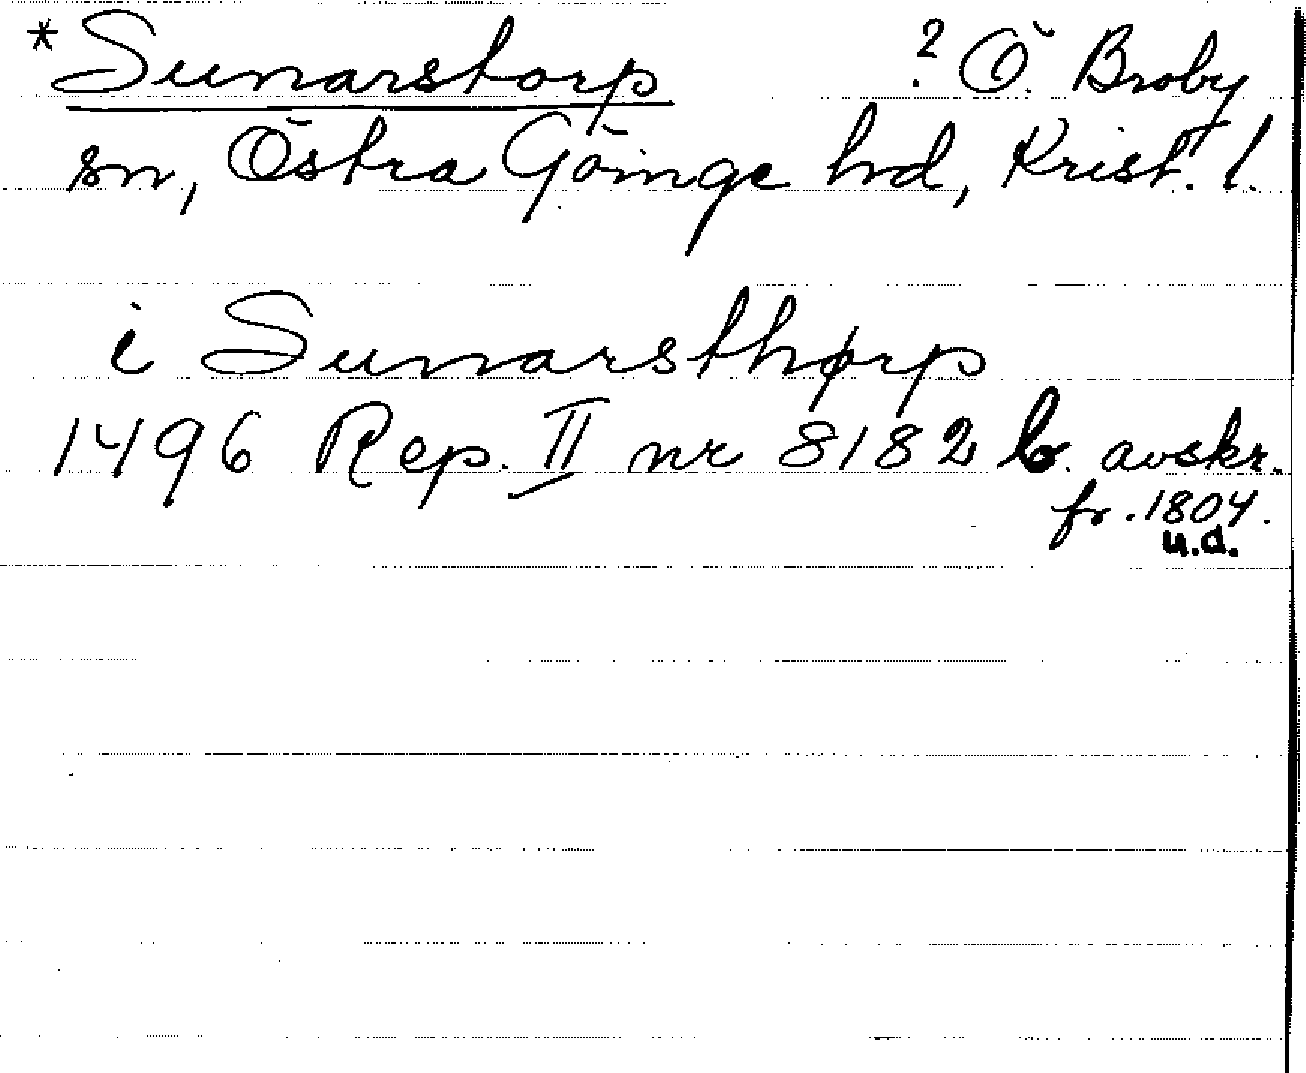 *Sunarstorp ? Ö. Broby
sn, Östra Göinge hd, Krist. l.
i Sunarsthørp
1496 Rep. II nr 8182 avskr.
fr. 1804.
u.d.